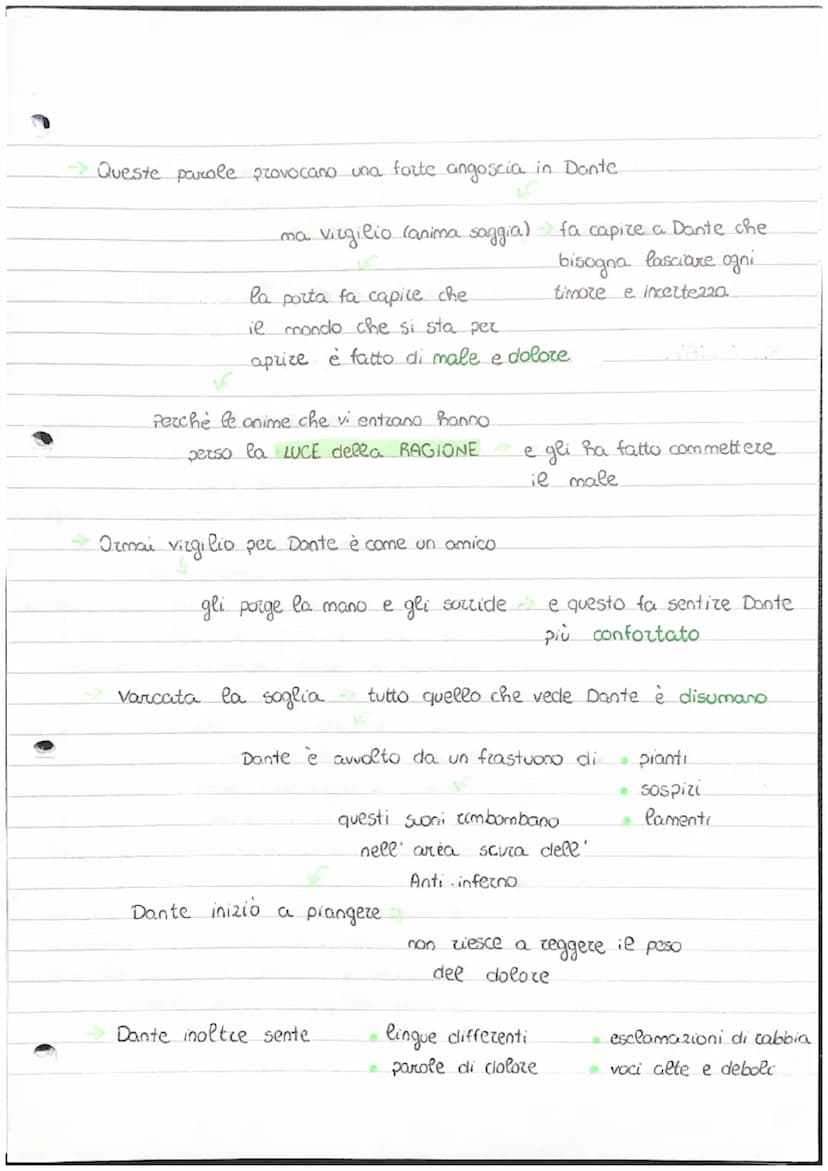 → Queste parole provocano una forte angoscia in Dante
ma virgilio (anima saggia) → fa capire a Dante che
bisogna lasciare ogni
timore e incertezza
la porta fa capire che
il mondo che si sta per
aprire è fatto di male e dolore
Perchè le anime che vi entrano hanno
perso la LUCE della RAGIONE → e gli ha fatto commettere
il male
→ Ormai virgilio per Dante è come un amico
gli porge la mano e gli sorride → e questo fa sentire Dante
più confortato
→ Varcata la soglia → tutto quello che vede Dante è disumano
Dante è avvolto da un frastuono di • pianti
• sospiri
questi suoni rimbombano • lamenti
nell' area scura dell'
Anti-inferno
Dante iniziò a piangere →
non riesce a reggere il peso
del dolore
→ Dante inoltre sente • lingue differenti • esclamazioni di rabbia
• parole di dolore • voci alte e deboli